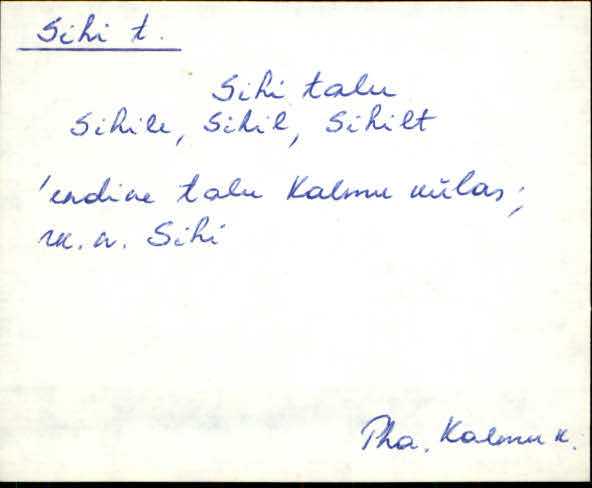 Sihi t.
Sihi talu
Sihile, Sihil, Sihilt
'endine talu Kalmu külas;
rk. n. Sihi
Pha. Kalmu k.